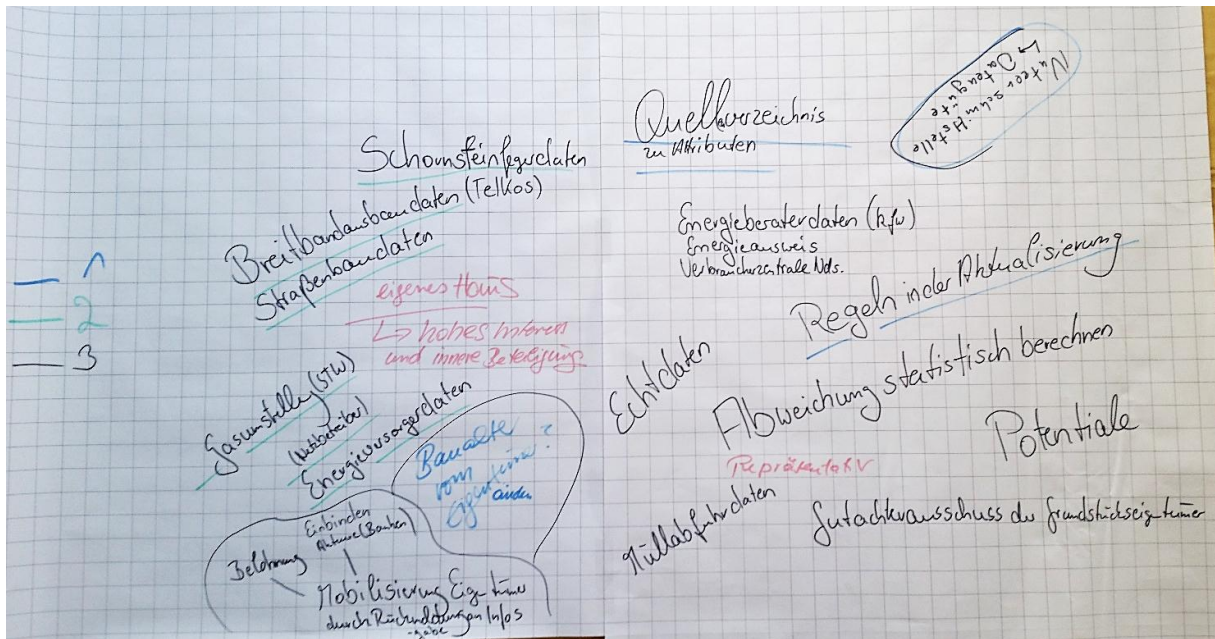 Schornsteinfegerdaten
Breitbandausbaudaten (Telkos)
Straßenbaudaten
1
2
3
eigenes Haus
↳ hohes Interesse
und innere Beteiligung
Gasumstellg (STW)
(Netzbetreiber)
Energieversorgerdaten
Bauakte
vom
Eigentüm. ?
ändern
Einbinden
Akteure (Banken)
Belohnung
Mobilisierung Eigentümer
durch Rückmeldungen Infos
-gabe
Quellverzeichnis
zu Attributen
↳ Datengüte
Energieberaterdaten (kfw)
Energieausweis
Verbraucherzentrale Nds.
Regeln in der Aktualisierung
Echtdaten
Abweichung statistisch berechnen
Potentiale
Repräsentativ
Müllabfuhrdaten
Gutachterausschuss der Grundstückseigentümer